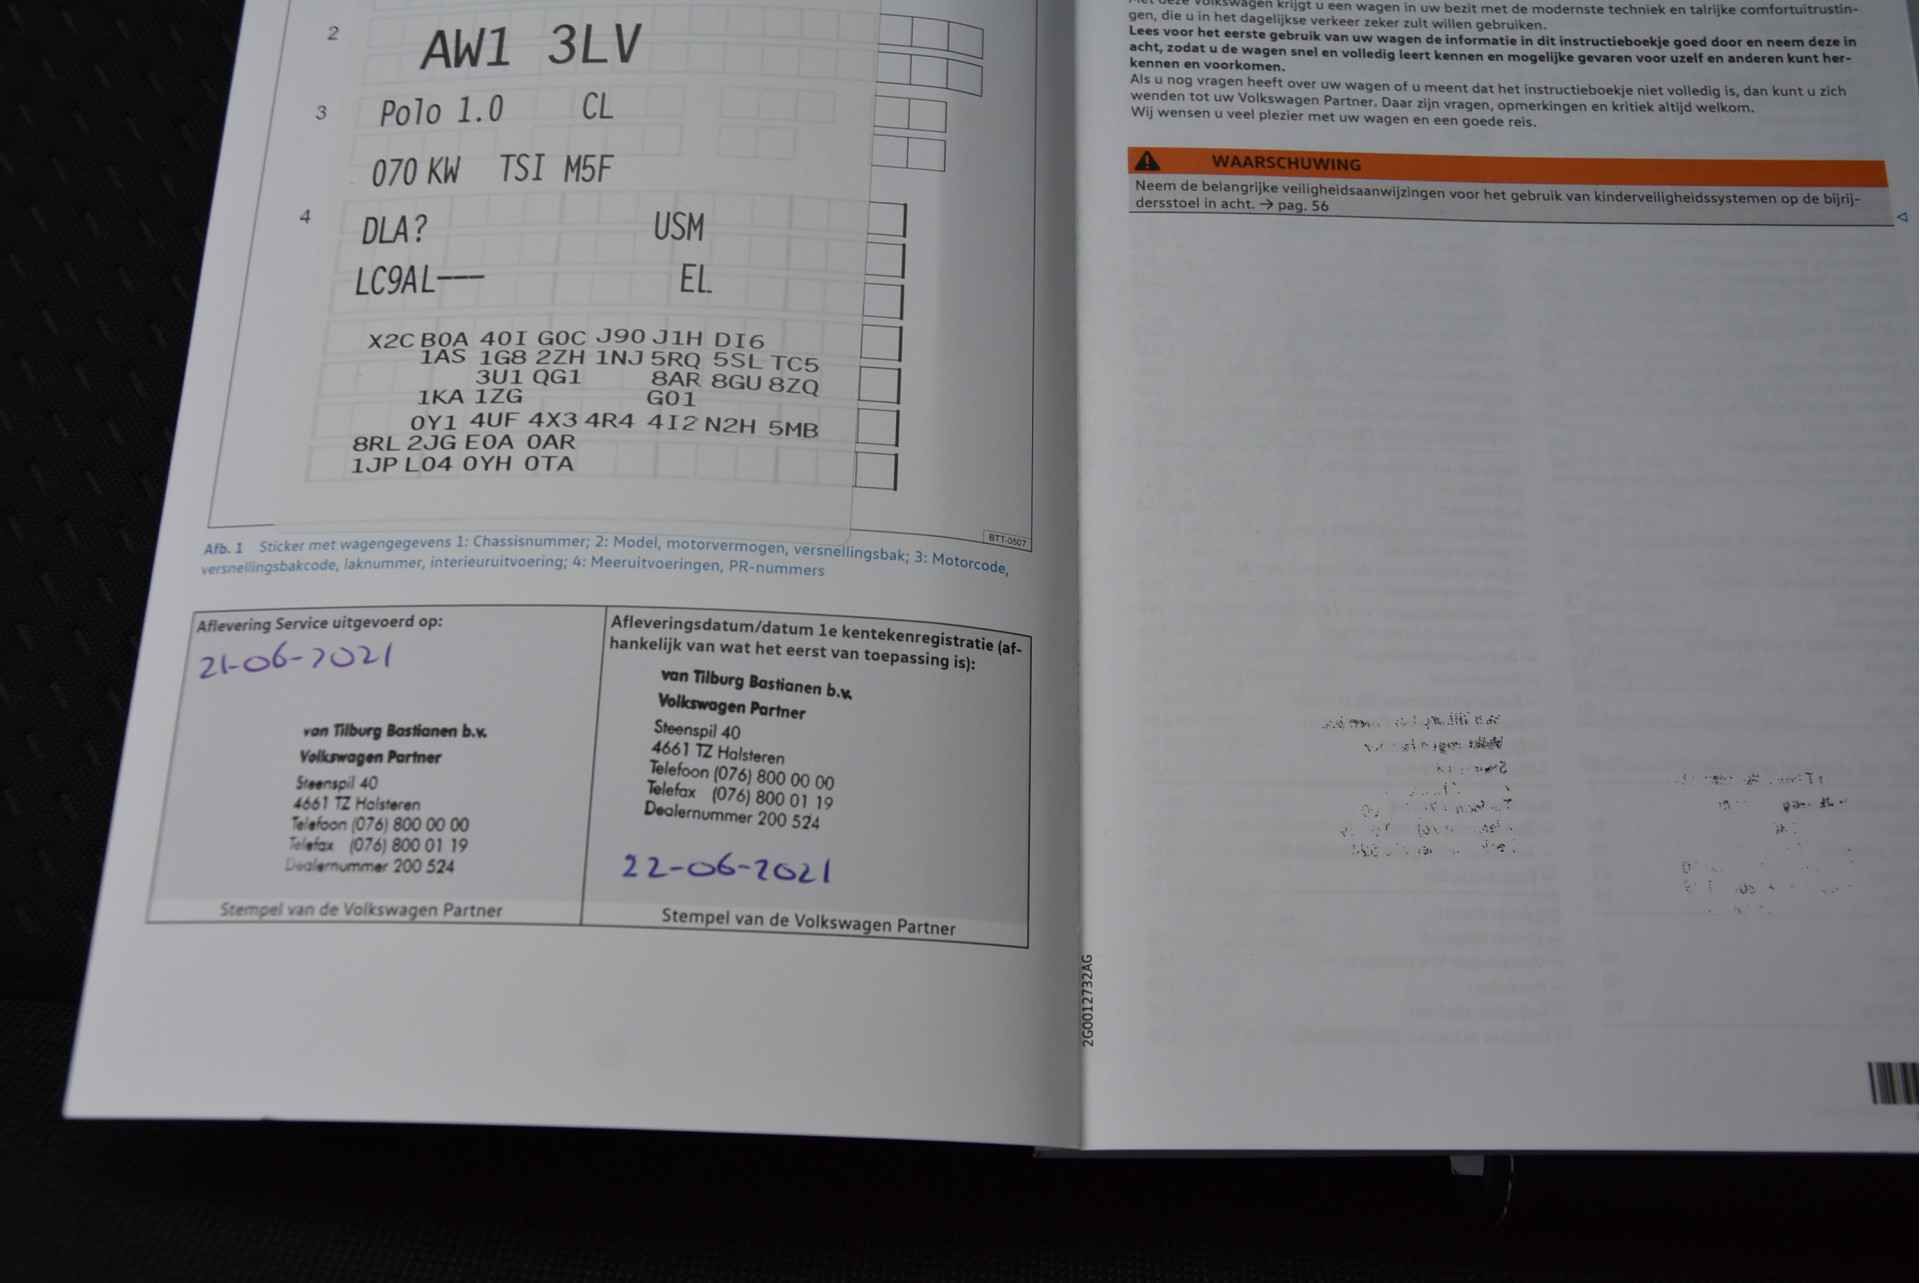 2
AW1 3LV
3
Polo 1.0 CL
070 KW TSI M5F
4
DLA? USM
LC9AL--- EL
X2C B0A 40I G0C J90 J1H DI6
1AS 1G8 2ZH 1NJ 5RQ 5SL TC5
3U1 QG1 8AR 8GU 8ZQ
1KA 1ZG G01
0Y1 4UF 4X3 4R4 4I2 N2H 5MB
8RL 2JG E0A 0AR
1JP L04 0YH 0TA
BTT-0507
Afb. 1 Sticker met wagengegevens 1: Chassisnummer; 2: Model, motorvermogen, versnellingsbak; 3: Motorcode,
versnellingsbakcode, laknummer, interieuruitvoering; 4: Meeruitvoeringen, PR-nummers
Aflevering Service uitgevoerd op:
21-06-2021
van Tilburg Bastianen b.v.
Volkswagen Partner
Steenspil 40
4661 TZ Halsteren
Telefoon (076) 800 00 00
Telefax (076) 800 01 19
Dealernummer 200 524
Stempel van de Volkswagen Partner
Afleveringsdatum/datum 1e kentekenregistratie (af-
hankelijk van wat het eerst van toepassing is):
van Tilburg Bastianen b.v.
Volkswagen Partner
Steenspil 40
4661 TZ Halsteren
Telefoon (076) 800 00 00
Telefax (076) 800 01 19
Dealernummer 200 524
22-06-2021
Stempel van de Volkswagen Partner
Met deze Volkswagen krijgt u een wagen in uw bezit met de modernste techniek en talrijke comfortuitrustin-
gen, die u in het dagelijkse verkeer zeker zult willen gebruiken.
Lees voor het eerste gebruik van uw wagen de informatie in dit instructieboekje goed door en neem deze in
acht, zodat u de wagen snel en volledig leert kennen en mogelijke gevaren voor uzelf en anderen kunt her-
kennen en voorkomen.
Als u nog vragen heeft over uw wagen of u meent dat het instructieboekje niet volledig is, dan kunt u zich
wenden tot uw Volkswagen Partner. Daar zijn vragen, opmerkingen en kritiek altijd welkom.
Wij wensen u veel plezier met uw wagen en een goede reis.
WAARSCHUWING
Neem de belangrijke veiligheidsaanwijzingen voor het gebruik van kinderveiligheidssystemen op de bijrij-
dersstoel in acht. → pag. 56
2G0012732AG